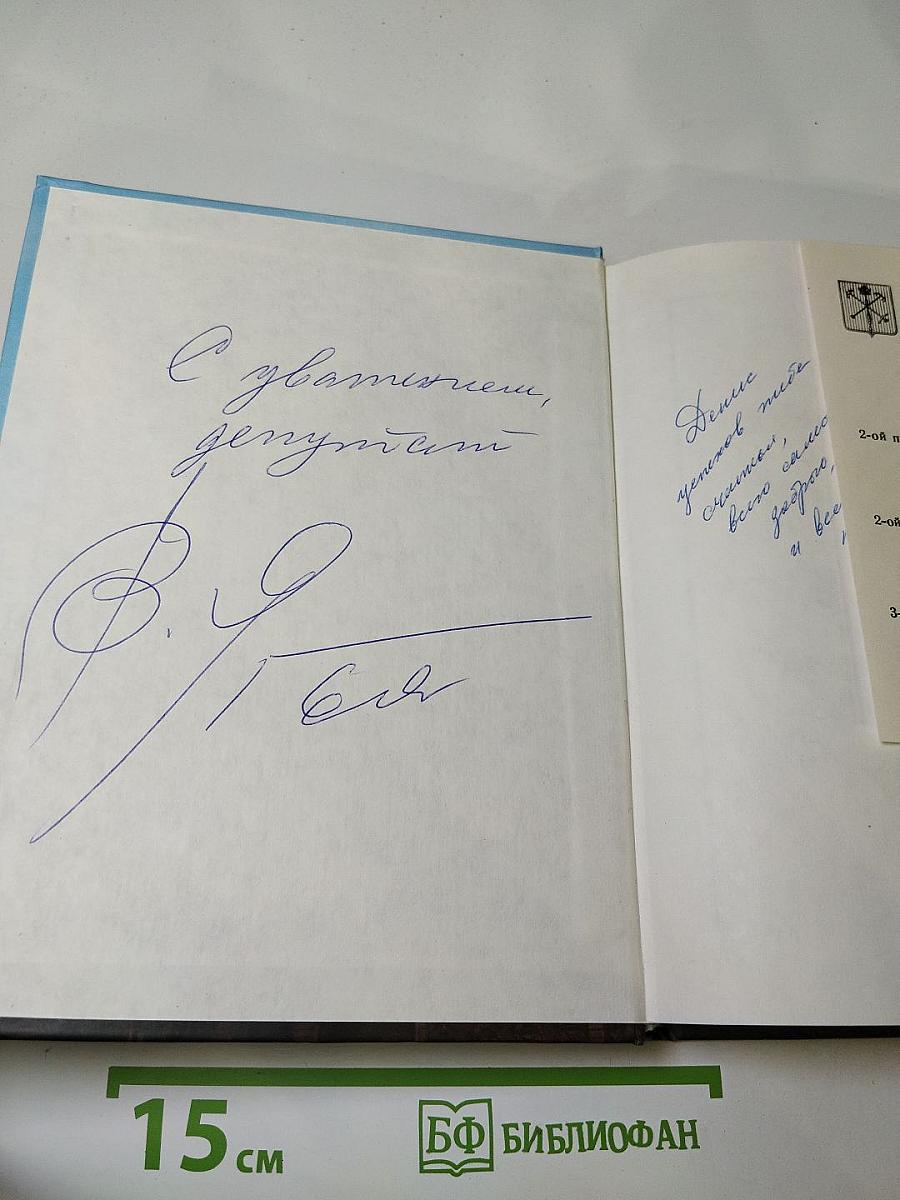 С уважением,
депутат
Денис
успехов тебе
счастья,
всего само
доброго,
и все
2-ой п
2-ой
3-
15 см
БФ БИБЛИОФАН